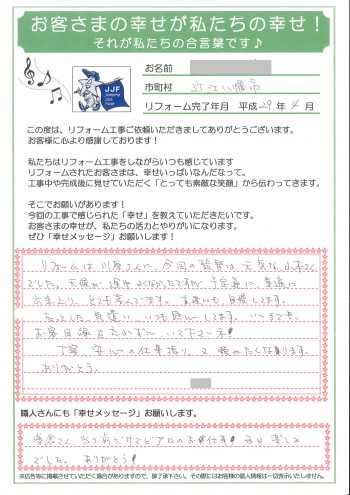 お客さまの幸せが私たちの幸せ！
それが私たちの合言葉です♪
JJF
お名前
市町村 近江八幡市
リフォーム完了年月 平成29年4月
この度は、リフォーム工事ご依頼いただきましてありがとうございます。
お客様に心より感謝しております！
私たちはリフォーム工事をしながらいつも感じています
リフォームされたお客さまは、幸せいっぱいなんだなって。
工事中や完成後に見せていただく「とっても素敵な笑顔」から伝わってきます。
そこでお願いがあります！
今回の工事で感じられた「幸せ」を教えていただきたいです。
お客さまの幸せが、私たちの活力とやりがいになります。
ぜひ「幸せメッセージ」お願いします！
リフォームは川原さんに、今回の監督は元気な山本さん
でした。天候が
出来上り、とても喜んでます。
ちょっとした気遣い いつも感心してます。いつまでも、
お客目線
丁寧、安心の仕事振り、又頼みたくなります。
ありがとう。
職人さんにも「幸せメッセージ」お願いします。
さん、当り前だけどプロのお仕事！ 楽しみ
でした。ありがとう！
※広告等に掲載させていただく場合がありますので、御了承下さい。その際にはお客様の個人情報は一切表示いたしません。